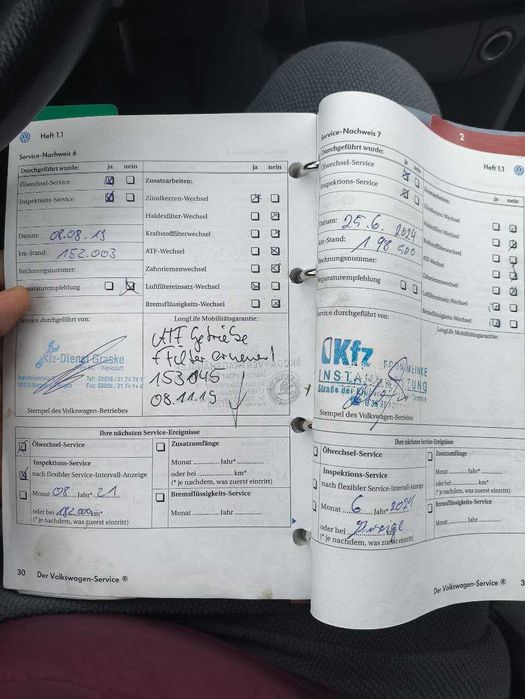 Heft 1.1
Service-Nachweis 6
Durchgeführt wurde: ja nein
Ölwechsel-Service
Inspektions-Service
Datum: 02.08.19
km-Stand: 152.003
Rechnungsnummer:
Reparaturempfehlung
Service durchgeführt von:
Kfz-Dienst Graske
Kfz - Werkstatt
Stempel des Volkswagen-Betriebes
ja nein
Zusatzarbeiten:
Zündkerzen-Wechsel
Haldexfilter-Wechsel
Kraftstofffilterwechsel
ATF-Wechsel
Zahnriemenwechsel
Luftfiltereinsatz-Wechsel
Bremsflüssigkeits-Wechsel
LongLife Mobilitätsgarantie:
ATF Getriebe
+ Filter erneuert
153045
08.11.19
Ihre nächsten Service-Ereignisse
Ölwechsel-Service
Inspektions-Service
nach flexibler Service-Intervall-Anzeige
Monat 08 Jahr* 21
oder bei 182.000 km*
(* je nachdem, was zuerst eintritt)
Zusatzumfänge
Monat ............ Jahr* ............
oder bei ............ km*
(* je nachdem, was zuerst eintritt)
Bremsflüssigkeits-Service
Monat ............ Jahr ............
30 Der Volkswagen-Service ®
2
Service-Nachweis 7
Heft 1.1
Durchgeführt wurde: ja nein
Ölwechsel-Service
Inspektions-Service
Datum: 25.6.2024
km-Stand: 198 500
Rechnungsnummer:
Reparaturempfehlung
Service durchgeführt von:
Kfz
Stempel des Volkswagen-Betriebes
ja nein
Zusatzarbeiten:
Zündkerzen-Wechsel
Haldexfilter-Wechsel
Kraftstofffilterwechsel
ATF-Wechsel
Zahnriemenwechsel
Luftfiltereinsatz-Wechsel
Bremsflüssigkeits-Wechsel
LongLife Mobilitätsgarantie:
Ihre nächsten Service-Ereignisse
Ölwechsel-Service
Inspektions-Service
nach flexibler Service-Intervall-Anzeige
Monat 6 Jahr* 2025
oder bei
(* je nachdem, was zuerst eintritt)
Zusatzumfänge
Monat ............ Jahr* ............
oder bei ............ km*
(* je nachdem, was zuerst eintritt)
Bremsflüssigkeits-Service
Monat ............ Jahr ............
Der Volkswagen-Service ®